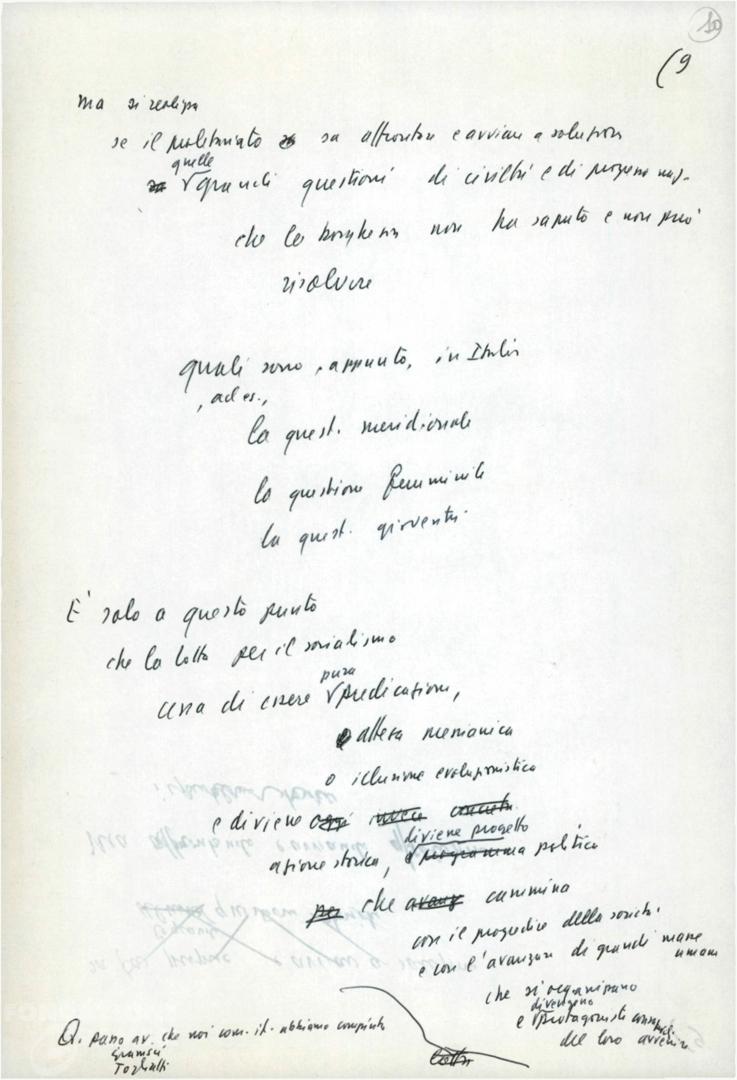 10
(9
ma si realizza
se il proletariato sa affrontare e avviare a soluzione
quelle
grandi questioni di civiltà e di progresso
che la borghesia non ha saputo e non può
risolvere
quali sono, appunto, in Italia
, ad es.,
la quest. meridionale
la questione femminile
la quest. gioventù
E' solo a questo punto
che la lotta per il socialismo
cessa di essere predicazione,
pura
attesa messianica
o illusione evoluzionistica
e diviene oggi invece concreta
diviene progetto
azione storica, e programma politico
per che avanz cammina
con il progredire della società
e con l'avanzare di grandi masse
umane
che si organizzano
divengono
e protagonisti
del loro avvenire
Q. passo av. che noi com. it. abbiamo compiuto
Gramsci
Togliatti
lotta